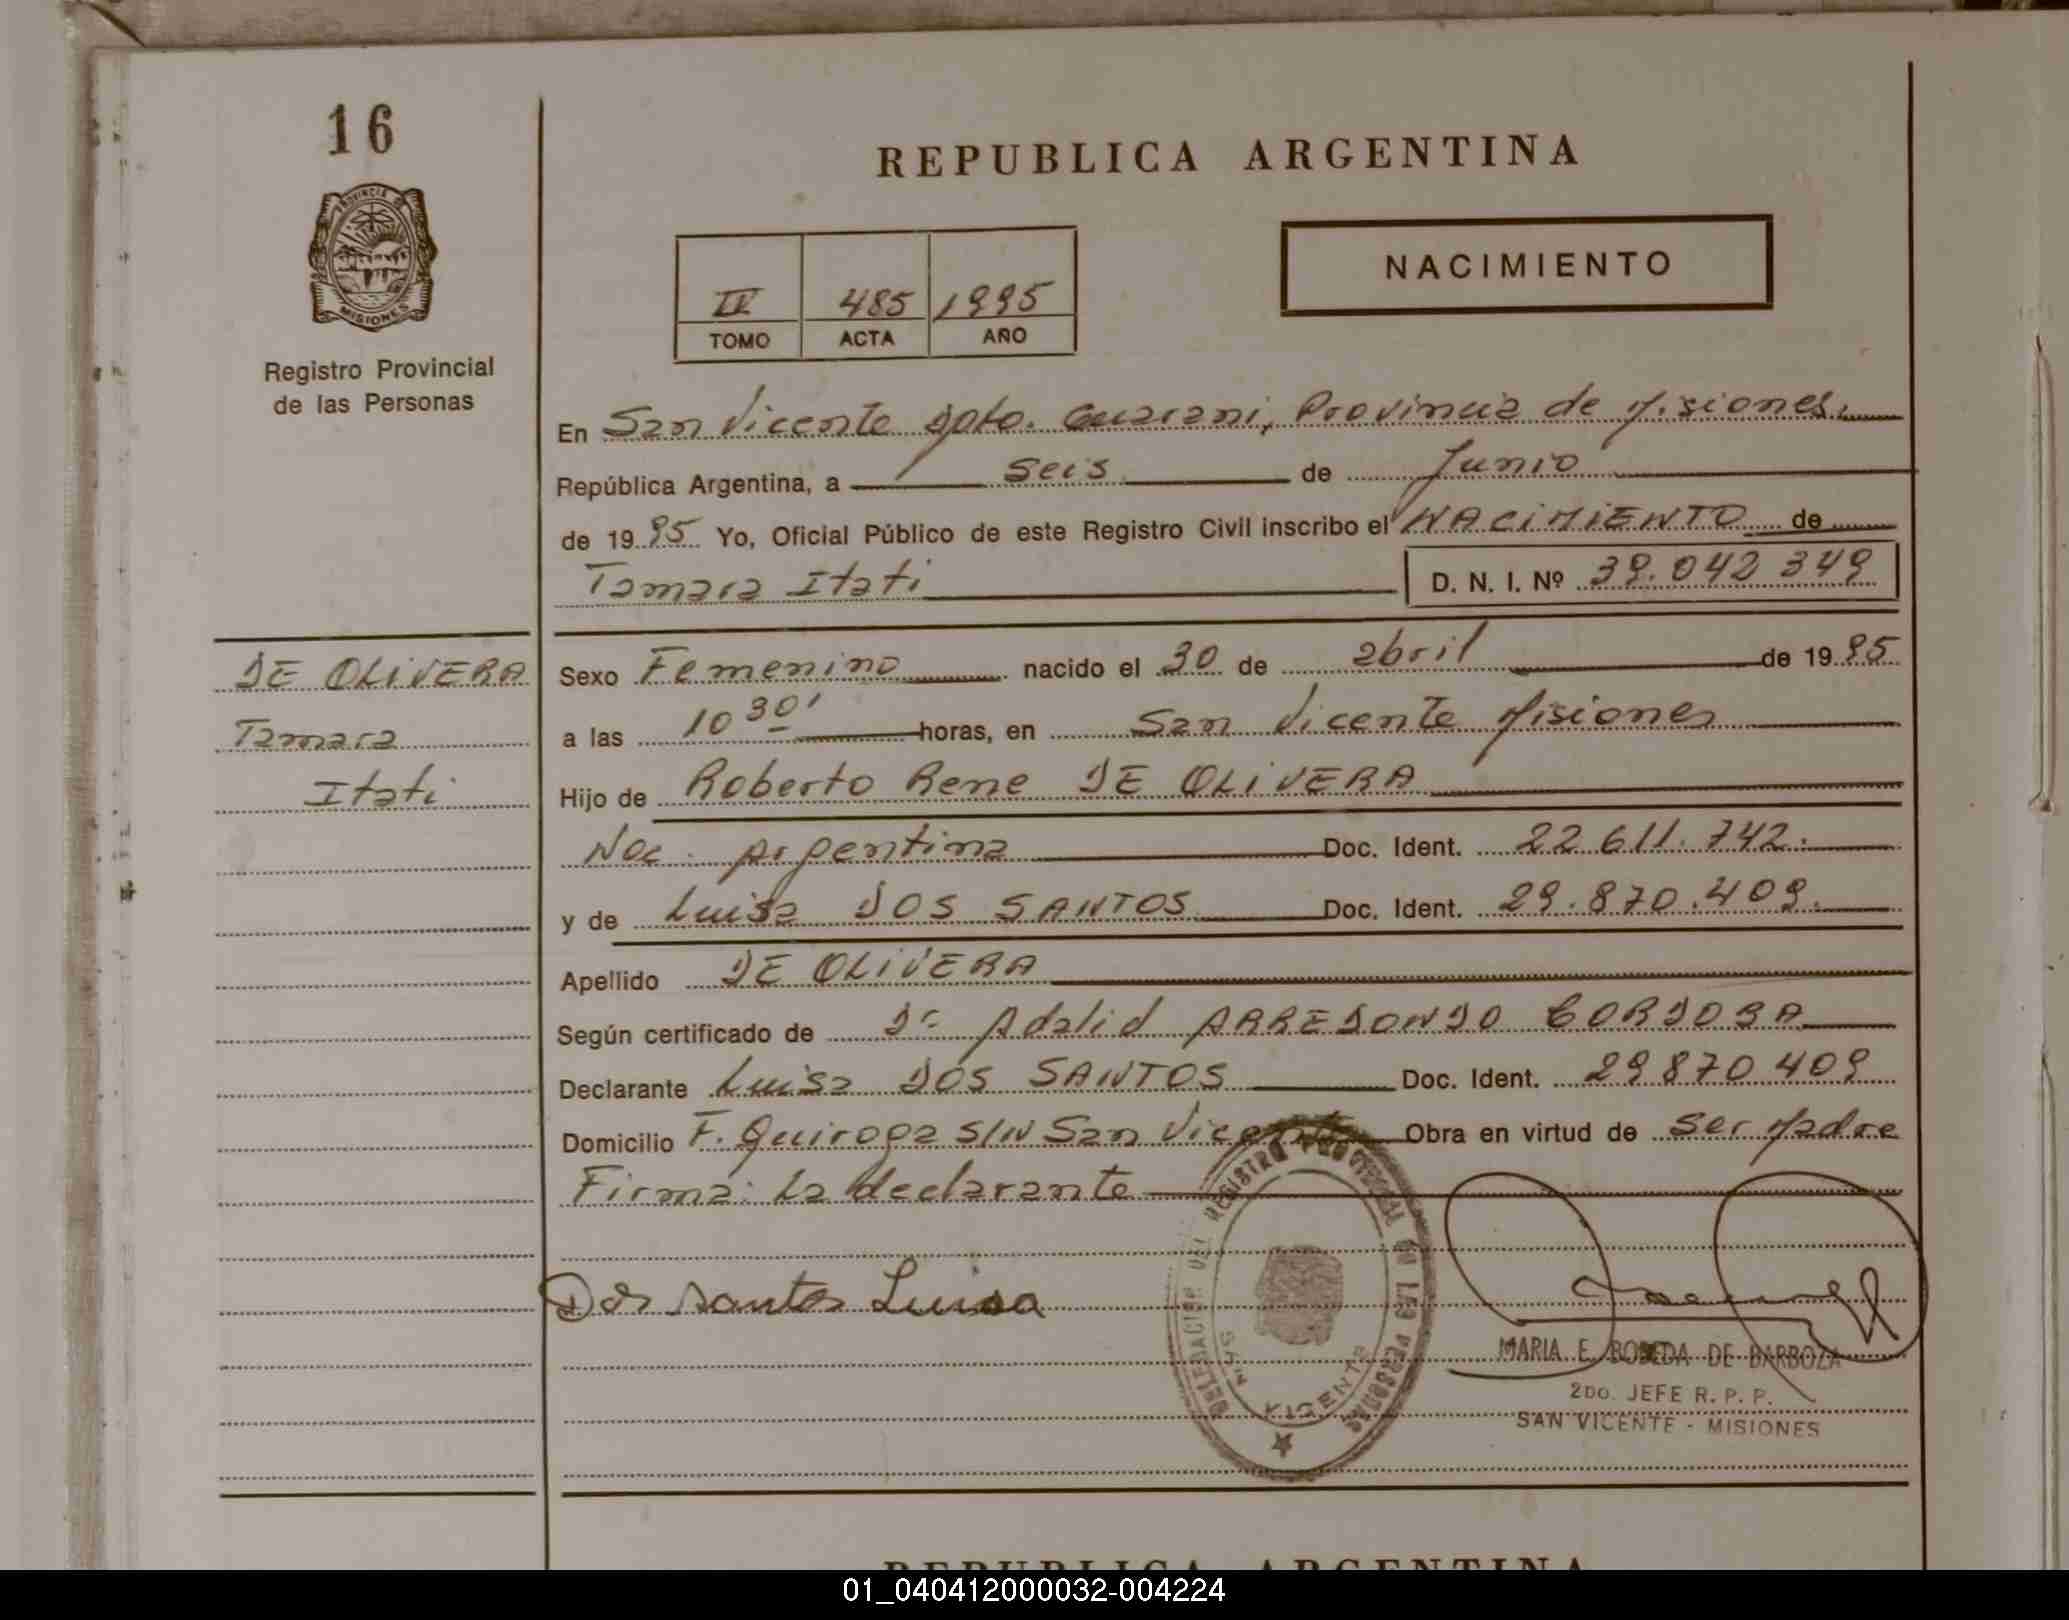 16
PROVINCIA DE
MISIONES
Registro Provincial
de las Personas
REPUBLICA ARGENTINA
NACIMIENTO
II 485 1995
TOMO ACTA AÑO
En San Vicente Dpto. Guarani, Provincia de Misiones.
República Argentina, a Seis de Junio
de 1995 Yo, Oficial Público de este Registro Civil inscribo el NACIMIENTO de
Tamara Itati D. N. I. Nº 39.042 349
DE OLIVERA
Tamara
Itati
Sexo Femenino nacido el 30 de abril de 1995
a las 10 30' horas, en San Vicente Misiones
Hijo de Roberto Rene DE OLIVERA
Nac. Argentina Doc. Ident. 22 611.742.
y de Luisa DOS SANTOS Doc. Ident. 29.870.409.
Apellido DE OLIVERA
Según certificado de Dr. Adalid ARREDONDO CORDOBA
Declarante Luisa DOS SANTOS Doc. Ident. 29 870 409
Domicilio F. Quiroga S/N San Vicente Obra en virtud de Ser Madre
Firma: La declarante
Dos santos Luisa
DELEGACION DEL REGISTRO PROVINCIAL DE LAS PERSONAS
SAN VICENTE
MARIA E. BOBEDA DE BARBOZA
2DO. JEFE R. P. P.
SAN VICENTE - MISIONES
REPUBLICA ARGENTINA
01_040412000032-004224